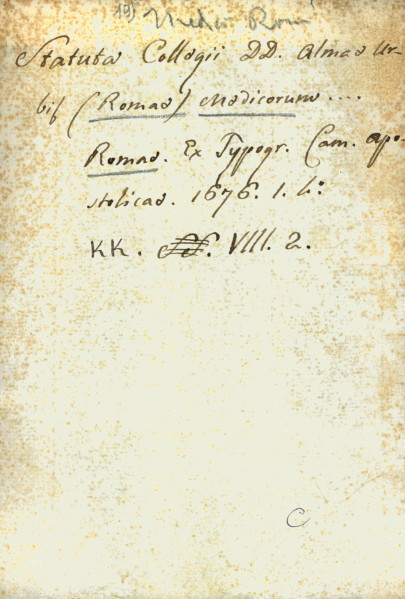 19) Medici Rom
Statuta Collegii DD. Almae Ur-
bis (Romae) Medicorum ....
Romae. Ex Typogr. Cam. apo-
stolicae. 1676. 1. 4:
KK. VIII. 2.
C